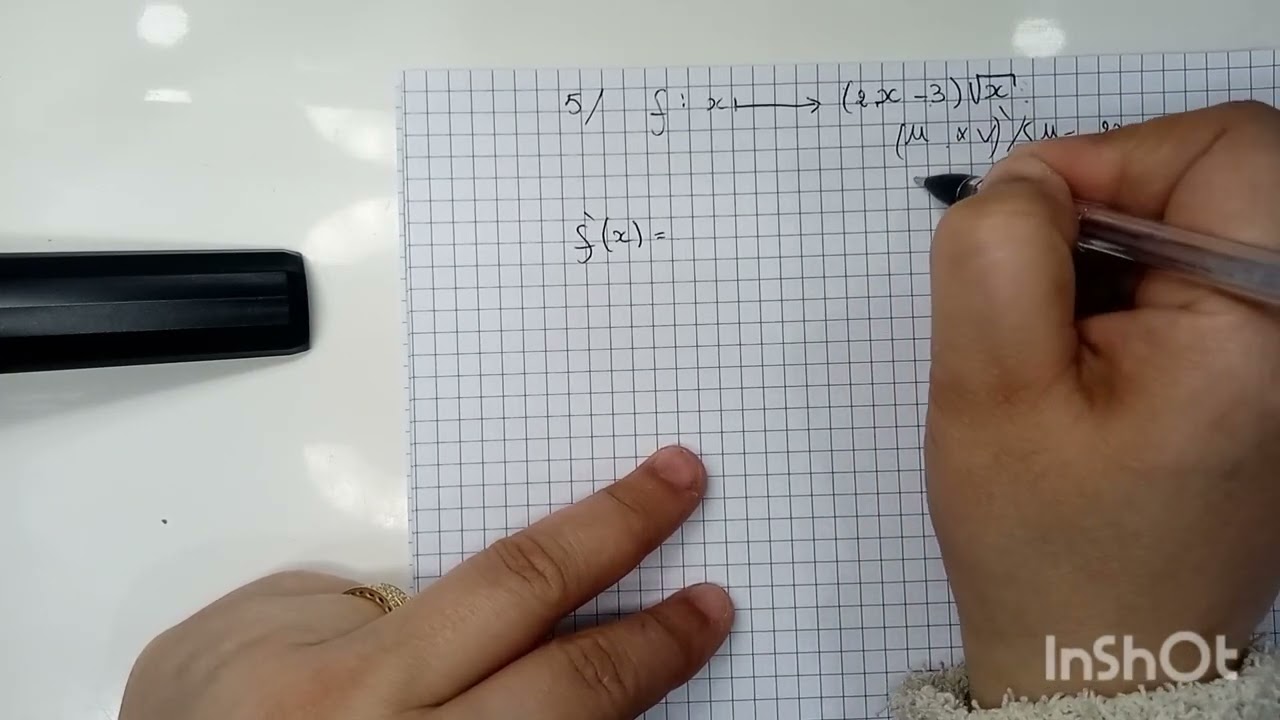 5/ f : x ⟼ (2x - 3)√x :
(u × v)'
f'(x) =
InShOt